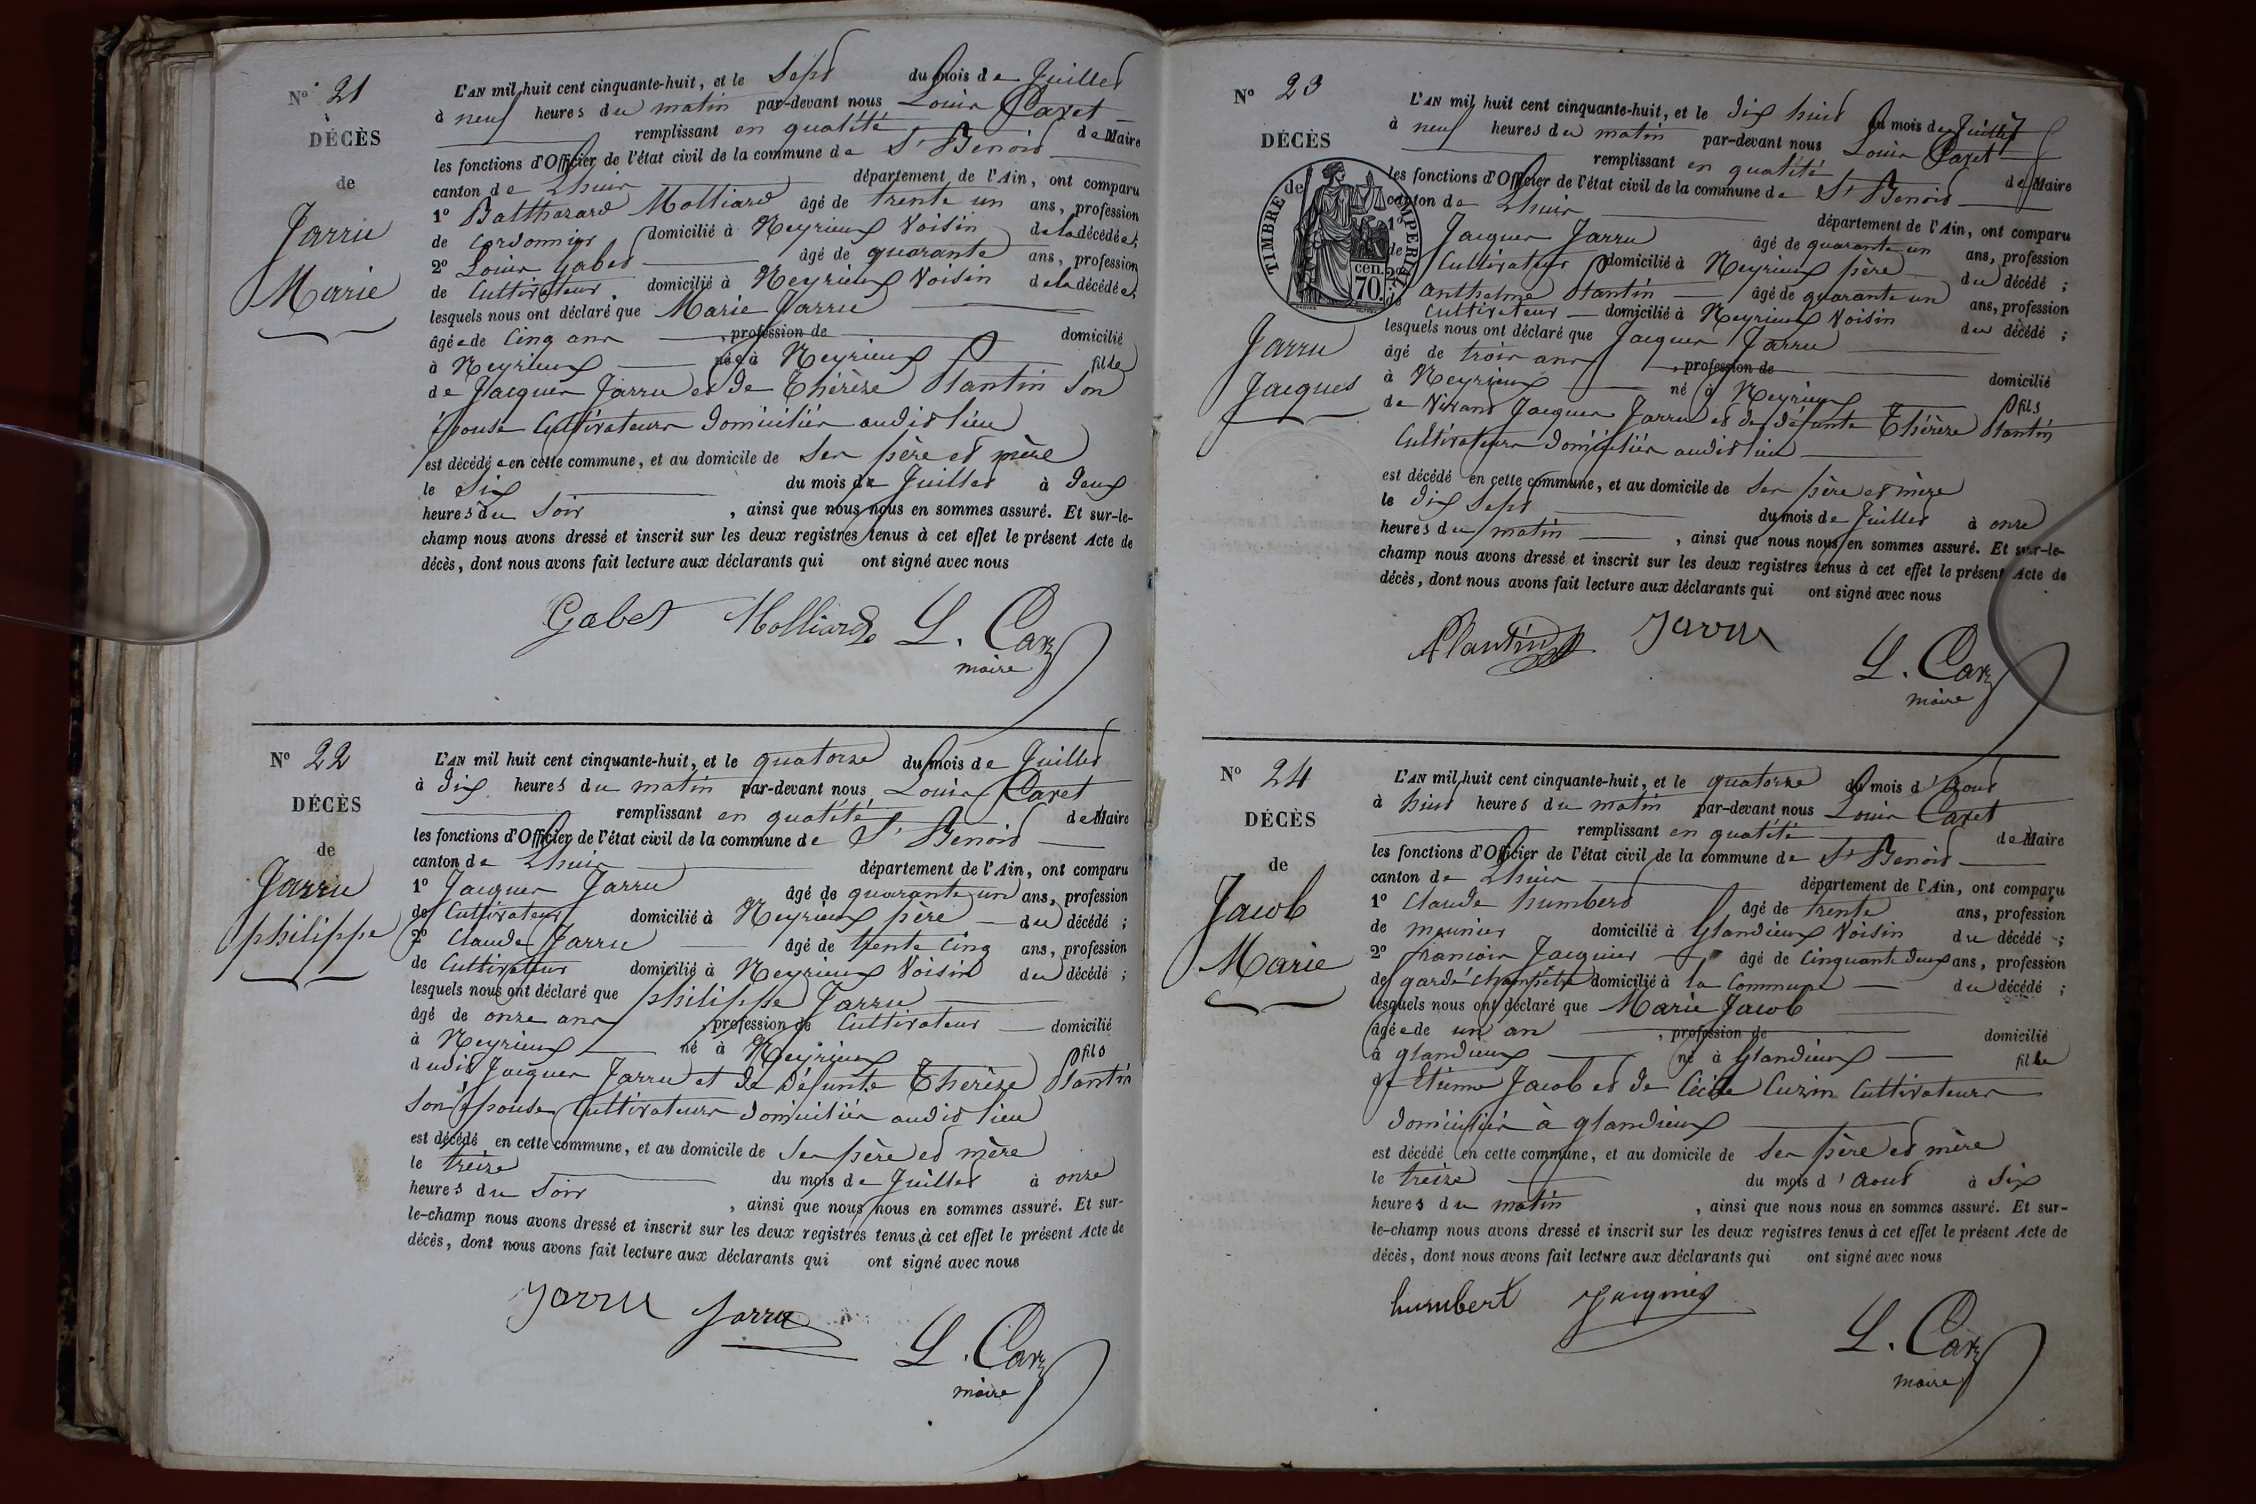 N° 21
DÉCÈS
de
Jarru
Marie
L'AN mil huit cent cinquante-huit, et le Sept du mois de Juillet
à neuf heures du matin par-devant nous Louis Caret
remplissant en qualité de Maire
les fonctions d'Officier de l'état civil de la commune de St Benoit
canton de Lhuis département de l'Ain, ont comparu
1° Balthazard Molliard âgé de trente un ans, profession
de Cordonnier domicilié à Neyrieux Voisin de la décédée;
2° Louis Gabet âgé de quarante ans, profession
de Cultivateur domicilié à Neyrieux Voisin de la décédée;
lesquels nous ont déclaré que Marie Jarru
âgée de Cinq ans , profession de domicilié
à Neyrieux née à Neyrieux fille
de Jacques Jarru et de Thérèze Plantin Son
épouse Cultivateurs domiciliés audit lieu
est décédée en cette commune, et au domicile de Ses père et mère
le Six du mois de Juillet à deux
heures du Soir , ainsi que nous nous en sommes assuré. Et sur-le-
champ nous avons dressé et inscrit sur les deux registres tenus à cet effet le présent Acte de
décès, dont nous avons fait lecture aux déclarants qui ont signé avec nous
Gabet Molliard L. Caret
maire
N° 22
DÉCÈS
de
Jarru
philippe
L'AN mil huit cent cinquante-huit, et le quatorze du mois de Juillet
à dix heures du matin par-devant nous Louis Caret
remplissant en qualité de Maire
les fonctions d'Officier de l'état civil de la commune de St Benoit
canton de Lhuis département de l'Ain, ont comparu
1° Jacques Jarru âgé de quarante un ans, profession
de Cultivateur domicilié à Neyrieux père du décédé ;
2° Claude Jarru âgé de trente cinq ans, profession
de Cultivateur domicilié à Neyrieux Voisin du décédé ;
lesquels nous ont déclaré que philippe Jarru
âgé de onze ans , profession de Cultivateur domicilié
à Neyrieux né à Neyrieux fils
dudit Jacques Jarru et de Défunte Thérèze Plantin
Son épouse Cultivateurs domiciliés audit lieu
est décédé en cette commune, et au domicile de Ses père et mère
le treize du mois de Juillet à onze
heures du Soir , ainsi que nous nous en sommes assuré. Et sur-
le-champ nous avons dressé et inscrit sur les deux registres tenus à cet effet le présent Acte de
décès, dont nous avons fait lecture aux déclarants qui ont signé avec nous
Jarru Jarru L. Caret
maire
N° 23
DÉCÈS
TIMBRE IMPERIAL
de
cen.
70.
Jarru
Jacques
L'AN mil huit cent cinquante-huit, et le dix huit du mois de Juillet
à neuf heures du matin par-devant nous Louis Caret
remplissant en qualité de Maire
les fonctions d'Officier de l'état civil de la commune de St Benoit
canton de Lhuis département de l'Ain, ont comparu
1° Jacques Jarru âgé de quarante un ans, profession
de Cultivateur domicilié à Neyrieux père du décédé ;
2° Anthelme Plantin âgé de quarante un ans, profession
de Cultivateur domicilié à Neyrieux Voisin du décédé ;
lesquels nous ont déclaré que Jacques Jarru
âgé de trois ans , profession de domicilié
à Neyrieux né à Neyrieux fils
de Vivant Jacques Jarru et de défunte Thérèze Plantin
Cultivateurs domiciliés audit lieu
est décédé en cette commune, et au domicile de Ses père et mère
le dix Sept du mois de Juillet à onze
heures du matin , ainsi que nous nous en sommes assuré. Et sur-le-
champ nous avons dressé et inscrit sur les deux registres tenus à cet effet le présent Acte de
décès, dont nous avons fait lecture aux déclarants qui ont signé avec nous
Plantin Jarru L. Caret
maire
N° 24
DÉCÈS
de
Jacob
Marie
L'AN mil huit cent cinquante-huit, et le quatorze du mois d'Aout
à huit heures du matin par-devant nous Louis Caret
remplissant en qualité de Maire
les fonctions d'Officier de l'état civil de la commune de St Benoit
canton de Lhuis département de l'Ain, ont comparu
1° Claude humbert âgé de trente ans, profession
de meunier domicilié à Glandieux Voisin du décédé ;
2° françois Jacquier âgé de Cinquante deux ans, profession
de garde champêtre domicilié à la Commune du décédé ;
lesquels nous ont déclaré que Marie Jacob
âgée de un an , profession de domicilié
à glandieux né à glandieux fille
de Etienne Jacob et de Cécile Cuzin Cultivateurs
domiciliés à glandieux
est décédé en cette commune, et au domicile de Ses père et mère
le treize du mois d'aout à Six
heures du matin , ainsi que nous nous en sommes assuré. Et sur-
le-champ nous avons dressé et inscrit sur les deux registres tenus à cet effet le présent Acte de
décès, dont nous avons fait lecture aux déclarants qui ont signé avec nous
humbert Jacquier L. Caret
maire